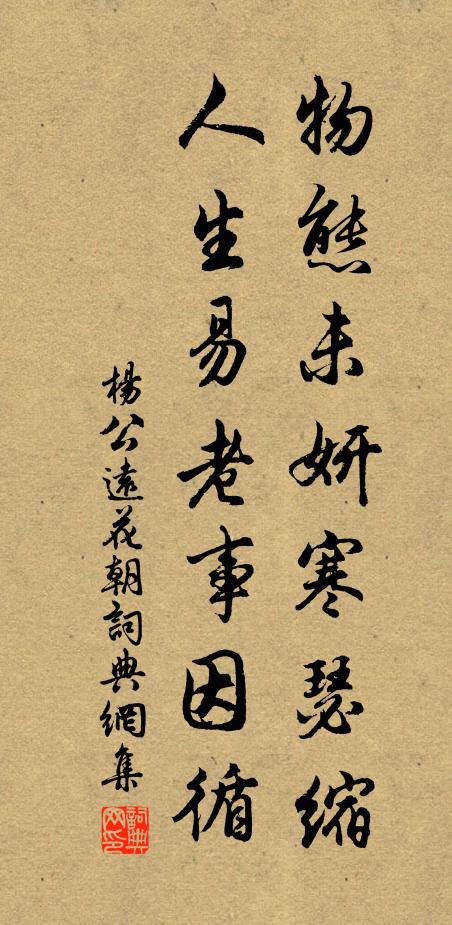 物態未妍寒瑟縮
人生易老事因循
楊公遠花朝詞典網集
詞典网印